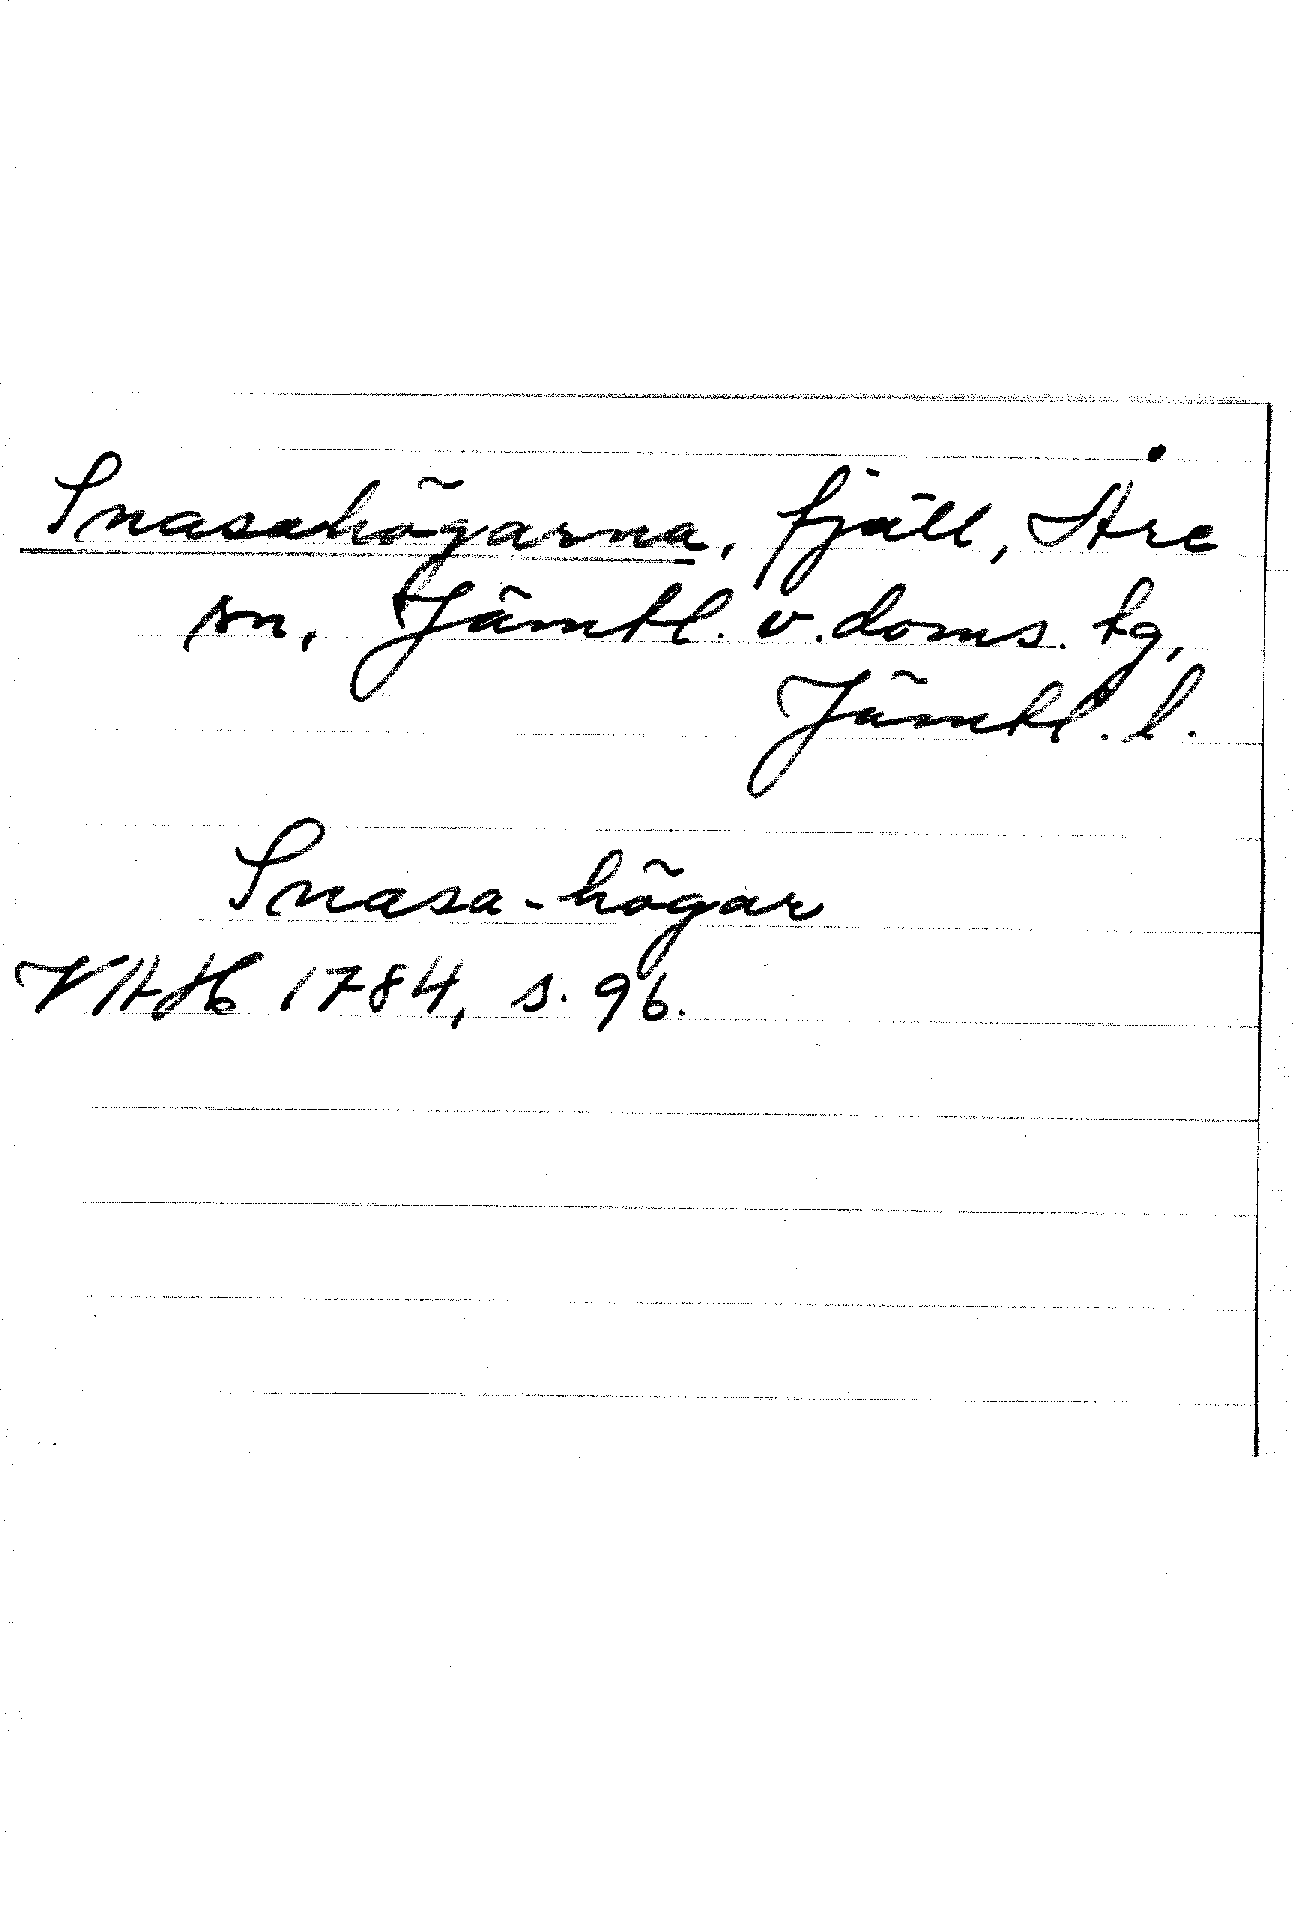 Snasahögarna, fjäll, Åre
sn, Jämtl. v. doms. tg,
Jämtl. l.
Snasa-högar
VAH 1784, s. 96.